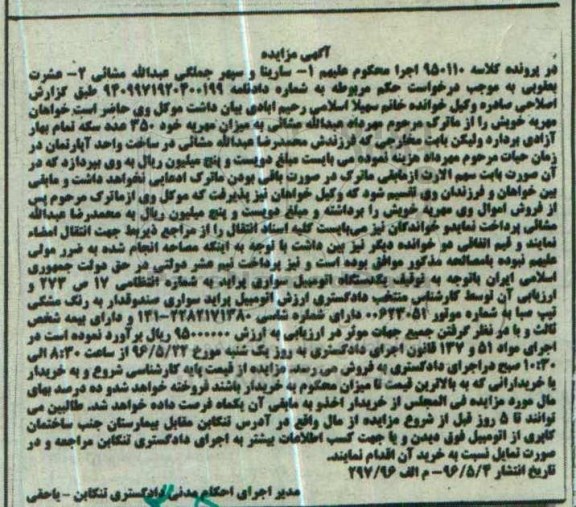 آگهی مزایده
در پرونده کلاسه ۹۵۰۱۱۰ اجرا محکوم علیهم ۱- سارینا و سپهر جملگی عبدالله مشائی ۲- عشرت
یعقوبی به موجب درخواست حکم مربوطه به شماره دادنامه ۹۴۰۹۹۷۱۹۲۰۳۰۰۱۹۹ طبق گزارش
اصلاحی صادره وکیل خوانده خانم سهیلا اسلامی رحیم ابادی بیان داشت موکل وی حاضر است خواهان
مهریه خویش را از ماترک مرحوم مهرداد عبدالله مشائی به میزان مهریه خود ۳۵۰ عدد سکه تمام بهار
آزادی بردارد ولیکن بابت مخارجی که فرزندش محمدرضا عبدالله مشائی در ساخت واحد آپارتمان در
زمان حیات مرحوم مهرداد هزینه نموده می بایست مبلغ دویست و پنج میلیون ریال به وی بپردازد که در
آن صورت بابت سهم الارث ازمابقی ماترک در صورت باقی بودن ماترک ادعایی نخواهد داشت و مابقی
بین خواهان و فرزندان وی تقسیم شود که وکیل خواهان نیز پذیرفت که موکل وی ازماترک مرحوم پس
از فروش اموال وی مهریه خویش را برداشته و مبلغ دویست و پنج میلیون ریال به محمدرضا عبدالله
مشائی پرداخت نمایدو خواندگان نیز می‌بایست کلیه اسناد انتقال را از مراجع ذیربط جهت انتقال امضاء
نمایند و قیم اتفاقی دو خوانده دیگر نیز بین داشت با توجه به اینکه مصالحه انجام شده به ضرر مولی
علیهم نبوده بامصالحه مذکور موافق بوده است و نیز پرداخت نیم عشر دولتی در حق دولت جمهوری
اسلامی ایران باتوجه به توقیف یکدستگاه اتومبیل سواری پراید به شماره انتظامی ۱۷ ص ۲۷۳ و
ارزیابی آن توسط کارشناس منتخب دادگستری ارزش اتومبیل پراید سواری صندوقدار به رنگ مشکی
تیپ صبا به شماره موتور ۰۰۶۲۳۰۵۱ دارای شماره شاسی ۲۲۸۲۱۷۱۳۸۰-۱۳۱ و دارای بیمه شخص
ثالث و با در نظر گرفتن جمیع جهات موثر در ارزیابی به ارزش ۹۵۰۰۰۰۰۰ ریال برآورد نموده است در
اجرای مواد ۵۱ و ۱۳۷ قانون اجرای دادگستری به روز یک شنبه مورخ ۹۶/۵/۲۲ از ساعت ۸:۳۰ الی
۱۰:۳۰ صبح دراجرای دادگستری به فروش می رسد. مزایده از قیمت پایه کارشناسی شروع و به خریدار
یا خریدارانی که به بالاترین قیمت تا میزان محکوم به خریدار باشند فروخته خواهد شدو ده درصد بهای
مال مورد مزایده فی المجلس از خریدار اخذو به مابقی آن یکماه فرصت داده خواهد شد. طالبین می
توانند تا ۵ روز قبل از شروع مزایده از مال واقع در آدرس تنکابن مقابل بیمارستان جنب ساختمان
کابری از اتومبیل فوق دیدن و یا جهت کسب اطلاعات بیشتر به اجرای دادگستری تنکابن مراجعه و در
صورت تمایل نسبت به خرید آن اقدام نمایند.
تاریخ انتشار ۹۶/۵/۴- م الف ۲۹۷/۹۶
مدیر اجرای احکام مدنی دادگستری تنکابن - یاحقی